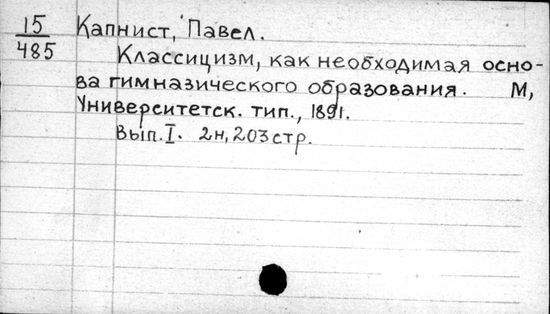 15 Капнист, Павел.
485 Классицизм, как необходимая осно-
ва гимназического образования. М,
Университетск. тип., 1891.
Вып. I. 2н, 203 стр.